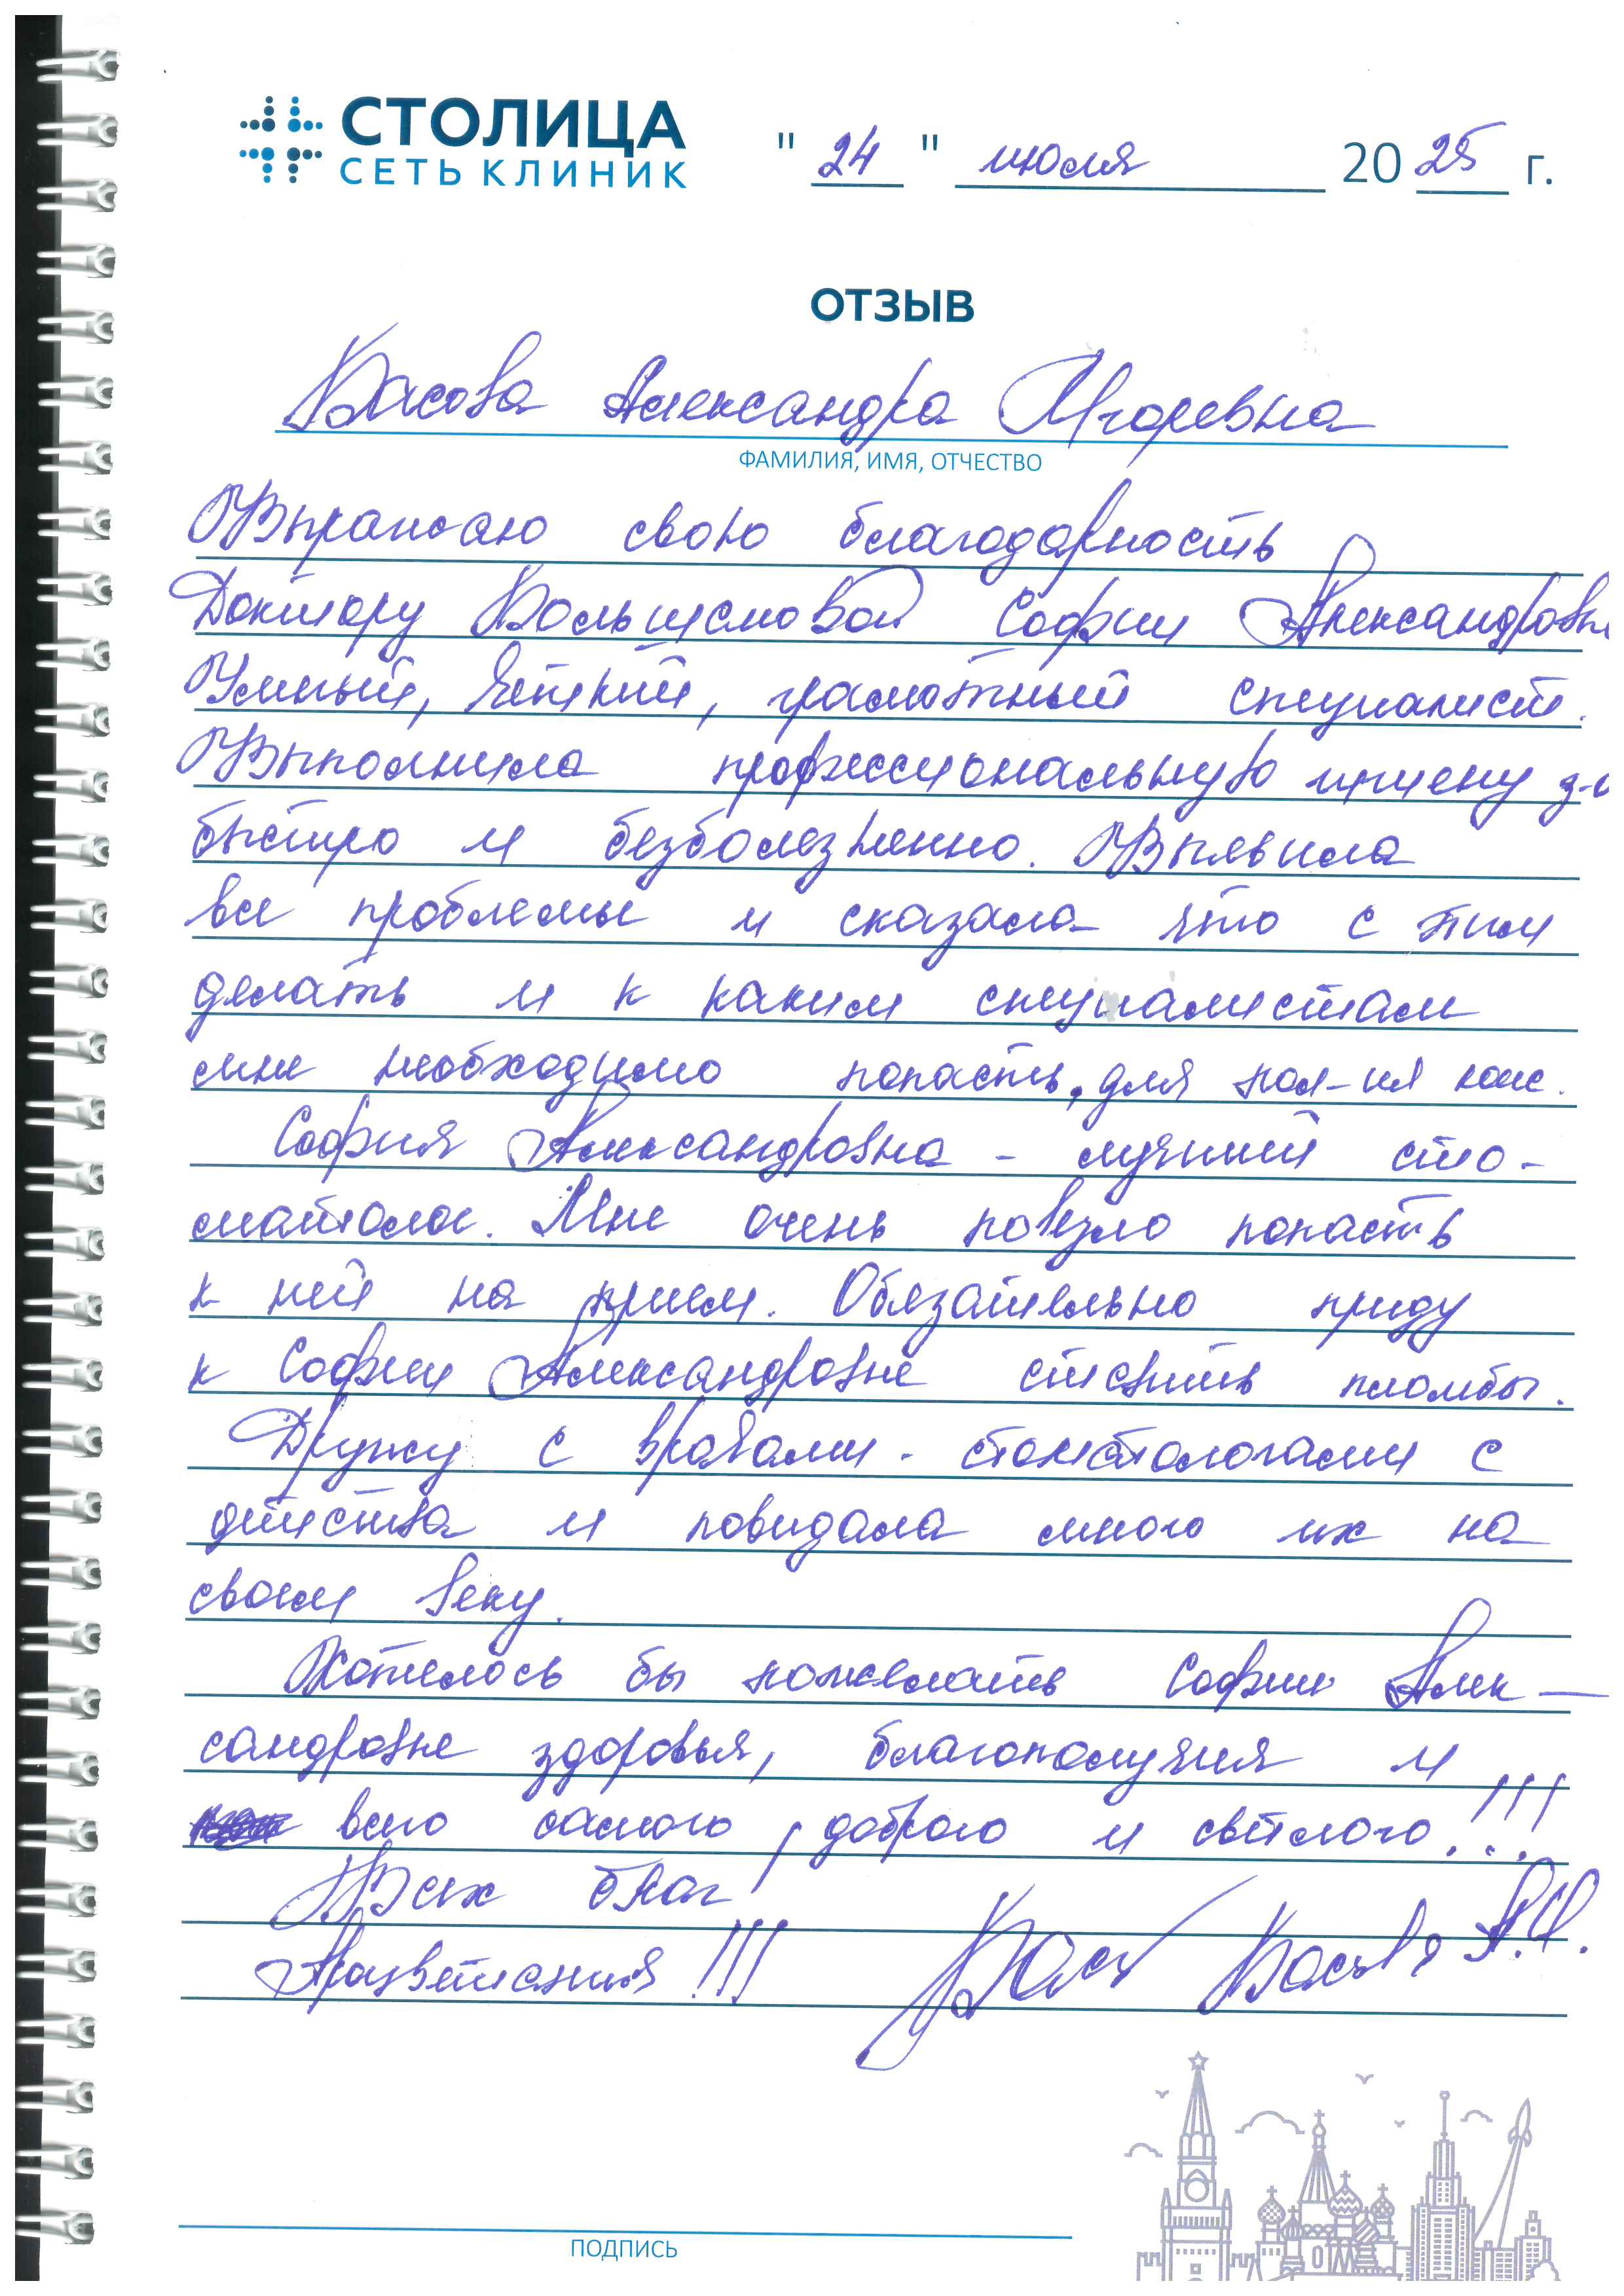 СТОЛИЦА
СЕТЬ КЛИНИК
" 24 " июля 2025 г.
ОТЗЫВ
Басова Александра Игоревна
ФАМИЛИЯ, ИМЯ, ОТЧЕСТВО
Выражаю свою благодарность
Доктору Большемовой Софии Александровне
Умный, чёткий, грамотный специалист.
Выполнила профессиональную гигиену з-в
быстро и безболезненно. Выявила
все проблемы и сказала что с этим
делать и к каким специалистам
мне необходимо попасть, для
София Александровна - лучший сто-
матолог. Мне очень повезло попасть
к ней на прием. Обязательно приду
к Софии Александровне ставить пломбы.
Дружу с врачами - стоматологами с
детства и повидала много их на
своем веку.
Хотелось бы пожелать Софии Алек-
сандровне здоровья, благополучия и
всего самого доброго и светлого...!!!
Всех благ
Процветания!!!
Басова А.И.
ПОДПИСЬ